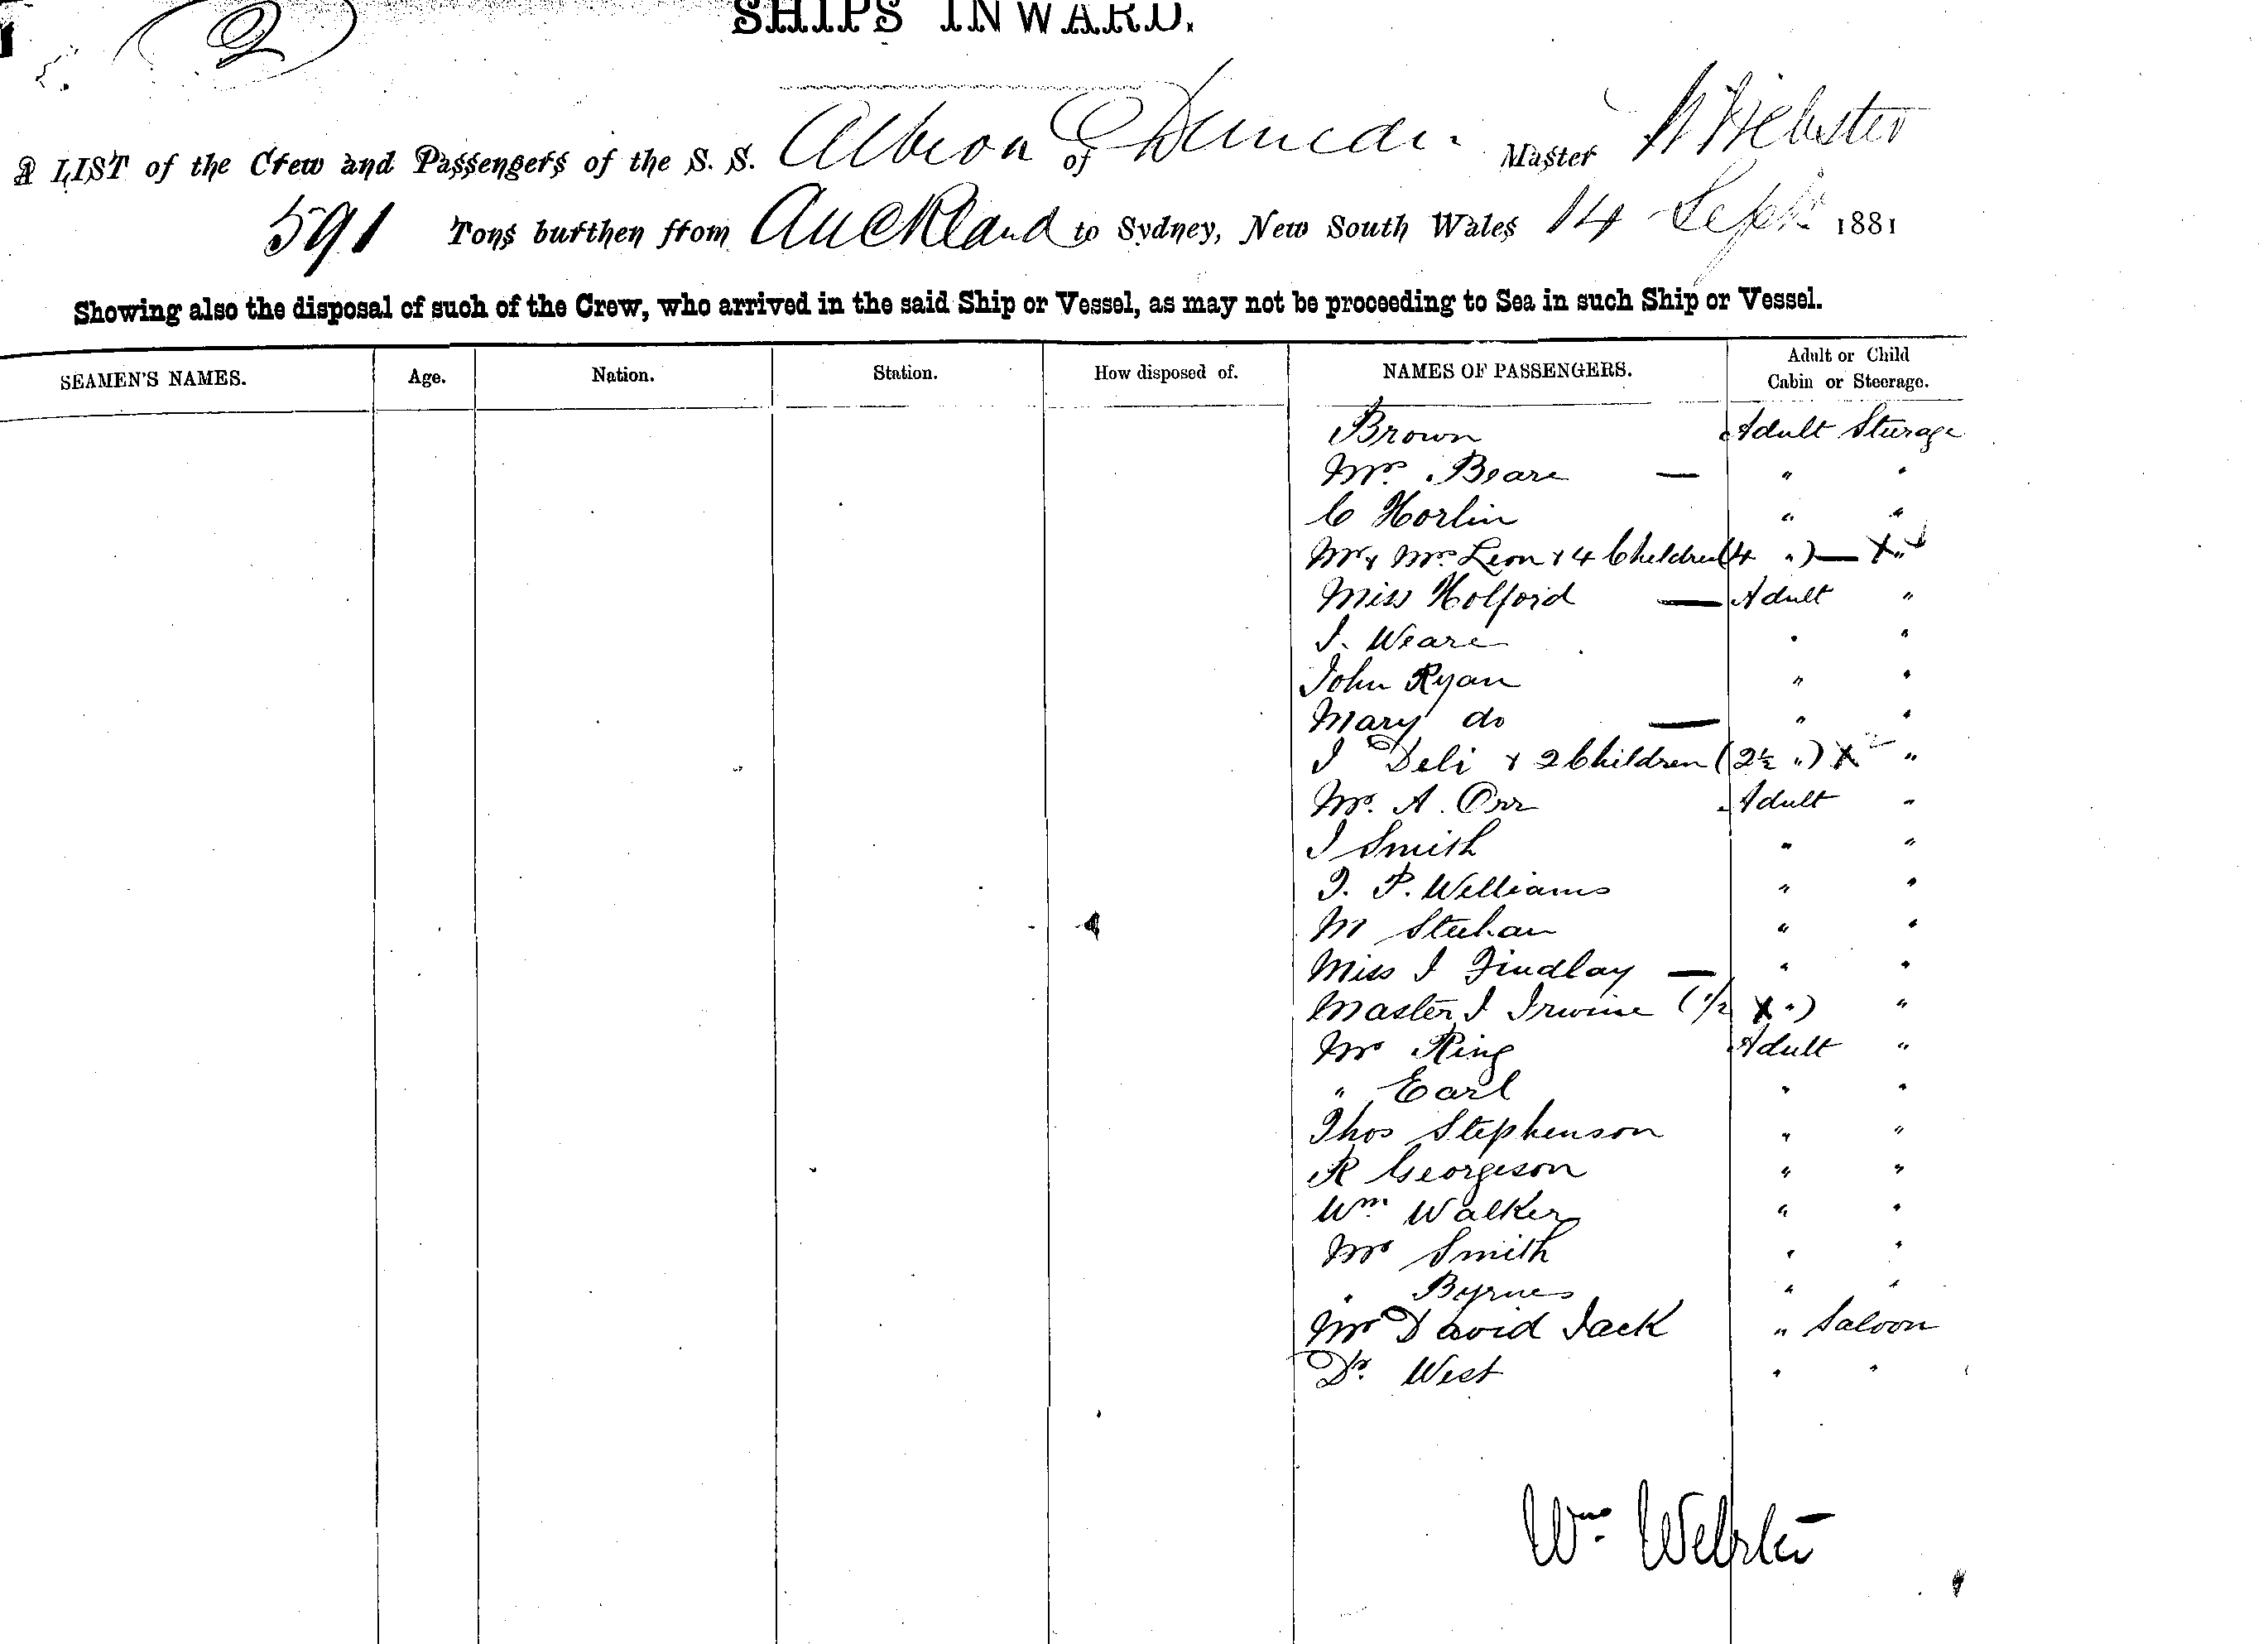 2
SHIPS INWARD.
A LIST of the Crew and Passengers of the S. S. Albion of Dunedin Master W Webster
591 Tons burthen from Auckland to Sydney, New South Wales 14 Septr 1881
Showing also the disposal of such of the Crew, who arrived in the said Ship or Vessel, as may not be proceeding to Sea in such Ship or Vessel.
SEAMEN'S NAMES. Age. Nation. Station. How disposed of. NAMES OF PASSENGERS. Adult or Child Cabin or Steerage.
Brown Adult Sturage
Mrs. Beare — " "
C Horlin " "
Mr & Mrs Leon & 4 Children (4 ") — X "
Miss Holford — Adult "
J. Weare " "
John Ryan " "
Mary do — " "
J Deli & 2 Children (2½ ") X 2 "
Mr. A. Orr Adult "
J Smith " "
J. P. Williams " "
M " "
Miss J Findlay — " "
Master J Irwine (1/2 X ") "
Mr Ring Adult "
" Earl " "
Thos Stephenson " "
R Georgeson " "
Wm. Walker " "
Mr Smith " "
" Byrnes " "
Mr David Jack " Saloon
Dr. West " "
Wm. Webster